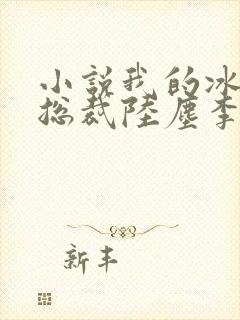 小説我的冰
総裁陸塵李
新丰